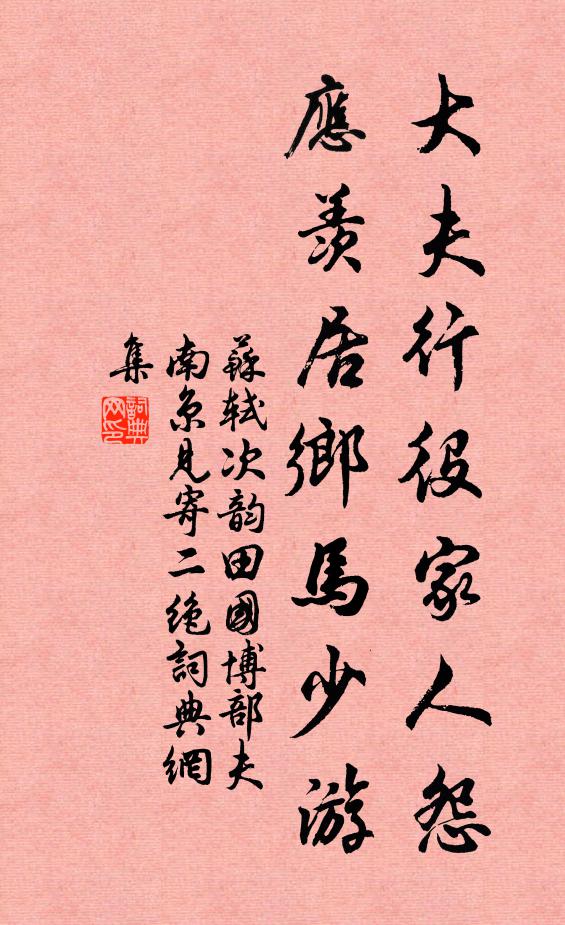 大夫行役家人怨
應羨居鄉馬少游
蘇軾次韵田國博部夫
南京見寄二绝詞典網
集
詞典
网印